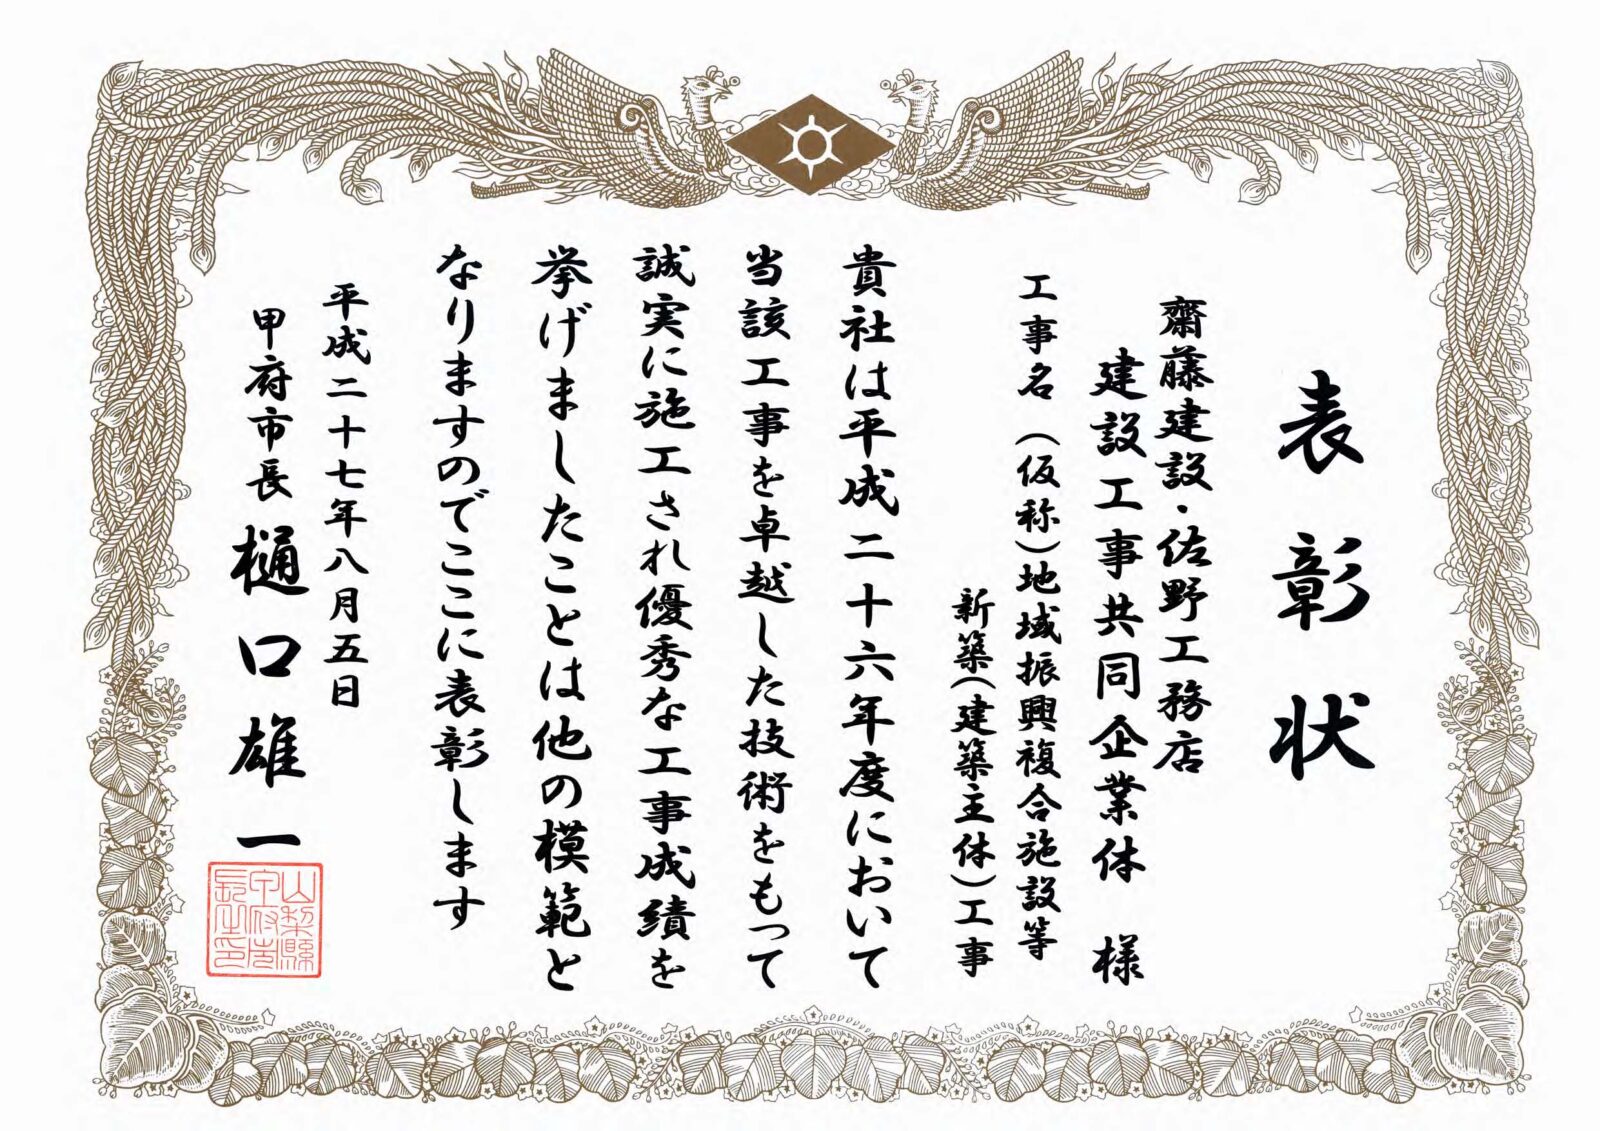 表彰状
齋藤建設・佐野工務店
建設工事共同企業体 様
工事名(仮称)地域振興複合施設等
新築(建築主体)工事
貴社は平成二十六年度において
当該工事を卓越した技術をもって
誠実に施工され優秀な工事成績を
挙げましたことは他の模範と
なりますのでここに表彰します
平成二十七年八月五日
甲府市長 樋口雄一
山梨縣
甲府市
長之印